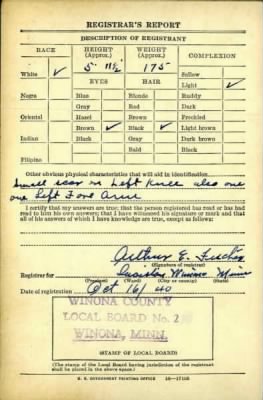 REGISTRAR'S REPORT
DESCRIPTION OF REGISTRANT
RACE HEIGHT (Approx.) WEIGHT (Approx.) COMPLEXION
White ✓ 5' 11½" 175 Sallow
EYES HAIR Light ✓
Negro Blue Blonde Ruddy
Gray Red Dark
Oriental Hazel Brown Freckled
Brown ✓ Black ✓ Light brown
Indian Black Gray Dark brown
Bald Black
Filipino
Other obvious physical characteristics that will aid in identification
Small scar on Left Knee also one
on Left Fore Arm
I certify that my answers are true; that the person registered has read or has had
read to him his own answers; that I have witnessed his signature or mark and that
all of his answers of which I have knowledge are true, except as follows:
Arthur E.
(Signature of registrar)
Registrar for Winona Minn
(Precinct) (Ward) (City or county) (State)
Date of registration Oct 16/40
WINONA COUNTY
LOCAL BOARD No. 2
WINONA, MINN.
(STAMP OF LOCAL BOARD)
(The stamp of the Local Board having jurisdiction of the registrant
shall be placed in the above space.)
U. S. GOVERNMENT PRINTING OFFICE 16—17105